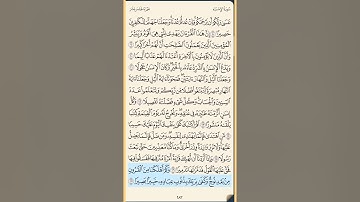 سُورَةُ الإِسْرَاءِ
الجُزْءُ الخَامِسَ عَشَرَ
عَسَىٰ رَبُّكُمْ أَن يَرْحَمَكُمْ وَإِنْ عُدتُّمْ عُدْنَا وَجَعَلْنَا جَهَنَّمَ لِلْكَٰفِرِينَ
حَصِيرًا ٨ إِنَّ هَٰذَا ٱلْقُرْءَانَ يَهْدِى لِلَّتِى هِىَ أَقْوَمُ وَيُبَشِّرُ
ٱلْمُؤْمِنِينَ ٱلَّذِينَ يَعْمَلُونَ ٱلصَّٰلِحَٰتِ أَنَّ لَهُمْ أَجْرًا كَبِيرًا ٩
وَأَنَّ ٱلَّذِينَ لَا يُؤْمِنُونَ بِٱلْءَاخِرَةِ أَعْتَدْنَا لَهُمْ عَذَابًا أَلِيمًا ١٠
وَيَدْعُ ٱلْإِنسَٰنُ بِٱلشَّرِّ دُعَآءَهُۥ بِٱلْخَيْرِ وَكَانَ ٱلْإِنسَٰنُ عَجُولًا ١١
وَجَعَلْنَا ٱلَّيْلَ وَٱلنَّهَارَ ءَايَتَيْنِ فَمَحَوْنَآ ءَايَةَ ٱلَّيْلِ وَجَعَلْنَآ
ءَايَةَ ٱلنَّهَارِ مُبْصِرَةً لِّتَبْتَغُوا۟ فَضْلًا مِّن رَّبِّكُمْ وَلِتَعْلَمُوا۟ عَدَدَ
ٱلسِّنِينَ وَٱلْحِسَابَ وَكُلَّ شَىْءٍ فَصَّلْنَٰهُ تَفْصِيلًا ١٢ وَكُلَّ
إِنسَٰنٍ أَلْزَمْنَٰهُ طَٰٓئِرَهُۥ فِى عُنُقِهِۦ وَنُخْرِجُ لَهُۥ يَوْمَ ٱلْقِيَٰمَةِ كِتَٰبًا
يَلْقَىٰهُ مَنشُورًا ١٣ ٱقْرَأْ كِتَٰبَكَ كَفَىٰ بِنَفْسِكَ ٱلْيَوْمَ عَلَيْكَ حَسِيبًا ١٤
مَّنِ ٱهْتَدَىٰ فَإِنَّمَا يَهْتَدِى لِنَفْسِهِۦ وَمَن ضَلَّ فَإِنَّمَا يَضِلُّ
عَلَيْهَا وَلَا تَزِرُ وَازِرَةٌ وِزْرَ أُخْرَىٰ وَمَا كُنَّا مُعَذِّبِينَ حَتَّىٰ نَبْعَثَ
رَسُولًا ١٥ وَإِذَآ أَرَدْنَآ أَن نُّهْلِكَ قَرْيَةً أَمَرْنَا مُتْرَفِيهَا فَفَسَقُوا۟ فِيهَا
فَحَقَّ عَلَيْهَا ٱلْقَوْلُ فَدَمَّرْنَٰهَا تَدْمِيرًا ١٦ وَكَمْ أَهْلَكْنَا مِنَ ٱلْقُرُونِ
مِنۢ بَعْدِ نُوحٍ وَكَفَىٰ بِرَبِّكَ بِذُنُوبِ عِبَادِهِۦ خَبِيرًۢا بَصِيرًا ١٧
٢٨٣